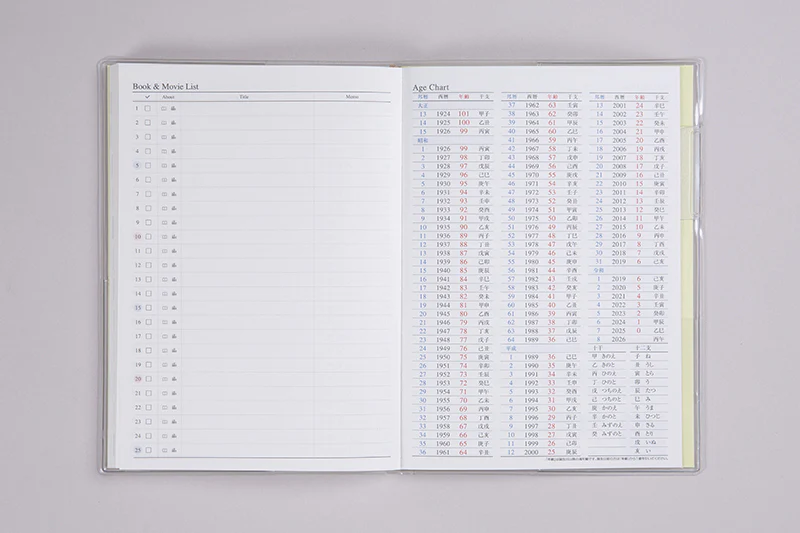 Book & Movie List
✓ About Title Memo
1
2
3
4
5
6
7
8
9
10
11
12
13
14
15
16
17
18
19
20
21
22
23
24
25
Age Chart
邦暦 西暦 年齢 干支
大正
13 1924 101 甲子
14 1925 100 乙丑
15 1926 99 丙寅
昭和
1 1926 99 丙寅
2 1927 98 丁卯
3 1928 97 戊辰
4 1929 96 己巳
5 1930 95 庚午
6 1931 94 辛未
7 1932 93 壬申
8 1933 92 癸酉
9 1934 91 甲戌
10 1935 90 乙亥
11 1936 89 丙子
12 1937 88 丁丑
13 1938 87 戊寅
14 1939 86 己卯
15 1940 85 庚辰
16 1941 84 辛巳
17 1942 83 壬午
18 1943 82 癸未
19 1944 81 甲申
20 1945 80 乙酉
21 1946 79 丙戌
22 1947 78 丁亥
23 1948 77 戊子
24 1949 76 己丑
25 1950 75 庚寅
26 1951 74 辛卯
27 1952 73 壬辰
28 1953 72 癸巳
29 1954 71 甲午
30 1955 70 乙未
31 1956 69 丙申
32 1957 68 丁酉
33 1958 67 戊戌
34 1959 66 己亥
35 1960 65 庚子
36 1961 64 辛丑
邦暦 西暦 年齢 干支
37 1962 63 壬寅
38 1963 62 癸卯
39 1964 61 甲辰
40 1965 60 乙巳
41 1966 59 丙午
42 1967 58 丁未
43 1968 57 戊申
44 1969 56 己酉
45 1970 55 庚戌
46 1971 54 辛亥
47 1972 53 壬子
48 1973 52 癸丑
49 1974 51 甲寅
50 1975 50 乙卯
51 1976 49 丙辰
52 1977 48 丁巳
53 1978 47 戊午
54 1979 46 己未
55 1980 45 庚申
56 1981 44 辛酉
57 1982 43 壬戌
58 1983 42 癸亥
59 1984 41 甲子
60 1985 40 乙丑
61 1986 39 丙寅
62 1987 38 丁卯
63 1988 37 戊辰
64 1989 36 己巳
平成
1 1989 36 己巳
2 1990 35 庚午
3 1991 34 辛未
4 1992 33 壬申
5 1993 32 癸酉
6 1994 31 甲戌
7 1995 30 乙亥
8 1996 29 丙子
9 1997 28 丁丑
10 1998 27 戊寅
11 1999 26 己卯
12 2000 25 庚辰
邦暦 西暦 年齢 干支
13 2001 24 辛巳
14 2002 23 壬午
15 2003 22 癸未
16 2004 21 甲申
17 2005 20 乙酉
18 2006 19 丙戌
19 2007 18 丁亥
20 2008 17 戊子
21 2009 16 己丑
22 2010 15 庚寅
23 2011 14 辛卯
24 2012 13 壬辰
25 2013 12 癸巳
26 2014 11 甲午
27 2015 10 乙未
28 2016 9 丙申
29 2017 8 丁酉
30 2018 7 戊戌
31 2019 6 己亥
令和
1 2019 6 己亥
2 2020 5 庚子
3 2021 4 辛丑
4 2022 3 壬寅
5 2023 2 癸卯
6 2024 1 甲辰
7 2025 0 乙巳
8 2026 丙午
十干 十二支
甲 きのえ 子 ね
乙 きのと 丑 うし
丙 ひのえ 寅 とら
丁 ひのと 卯 う
戊 つちのえ 辰 たつ
己 つちのと 巳 み
庚 かのえ 午 うま
辛 かのと 未 ひつじ
壬 みずのえ 申 さる
癸 みずのと 酉 とり
戌 いぬ
亥 い